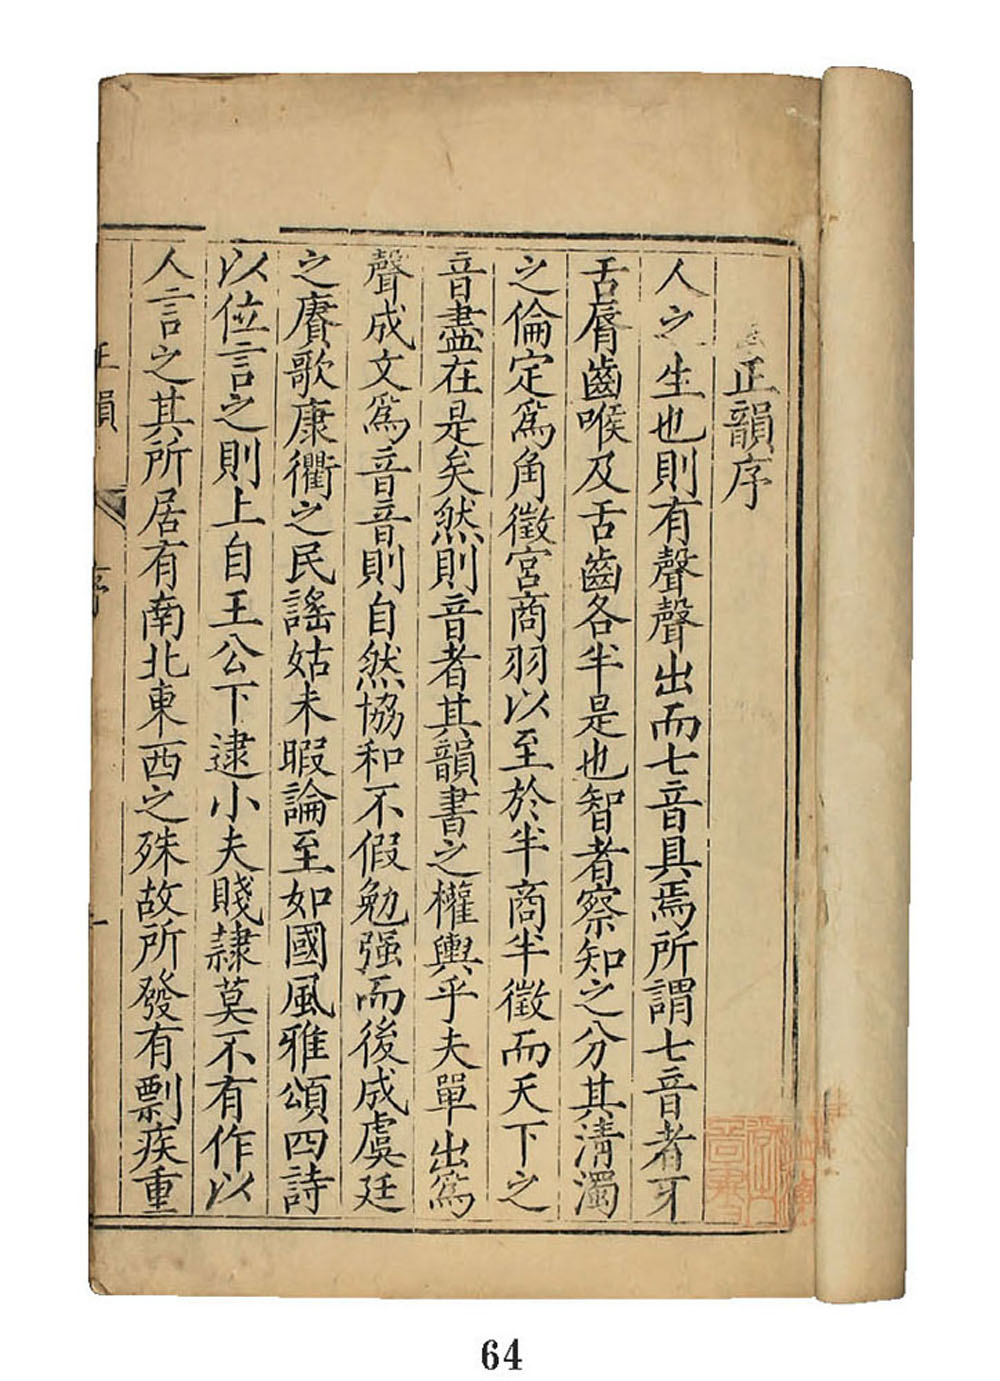 正韻序
人之生也則有聲聲出而七音具焉所謂七音者牙
舌脣齒喉及舌齒各半是也智者察知之分其清濁
之倫定爲角徵宮商羽以至於半商半徵而天下之
音盡在是矣然則音者其韻書之權輿乎夫單出爲
聲成文爲音音則自然協和不假勉强而後成虞廷
之賡歌康衢之民謠姑未暇論至如國風雅頌四詩
以位言之則上自王公下逮小夫賤隷莫不有作以
人言之其所居有南北東西之殊故所發有剽疾重
正韻
序
一
64